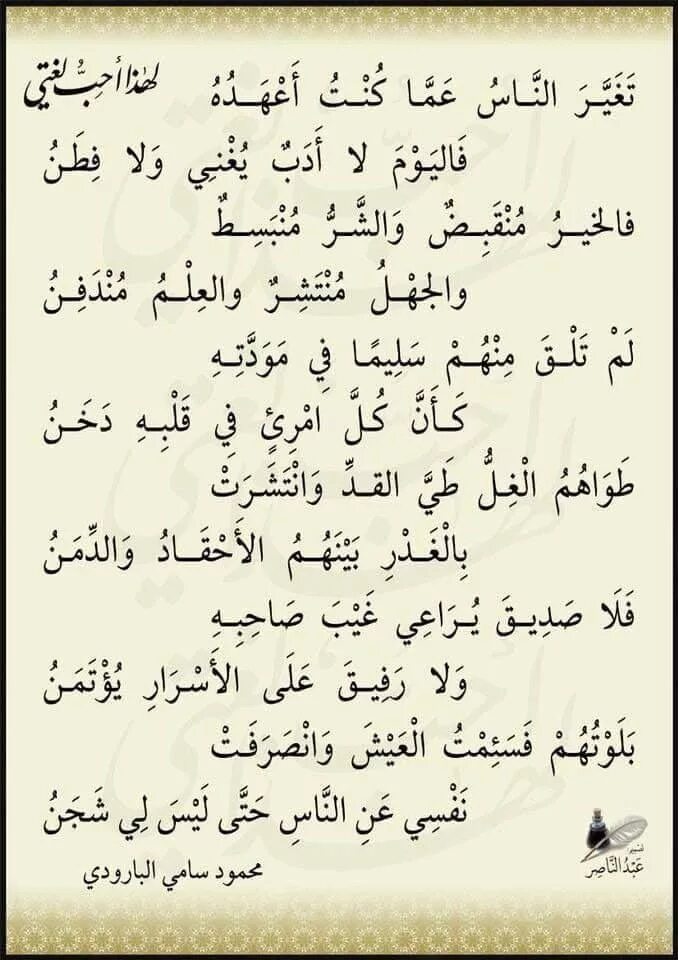 لهذا أحبُّ لغتي
تَغَيَّـرَ النَّـاسُ عَمَّـا كُنْـتُ أَعْهَـدُهُ
فَاليَـوْمَ لا أَدَبٌ يُغْنِـي وَلا فِطَـنُ
فالخيـرُ مُنْقَبِـضٌ وَالشَّـرُّ مُنْبَسِـطٌ
والجهْـلُ مُنْتَشِـرٌ والعِلْـمُ مُنْدَفِـنُ
لَمْ تَلْـقَ مِنْهُـمْ سَلِيمًـا فِي مَوَدَّتِـهِ
كَـأَنَّ كُلَّ امْرِئٍ فِي قَلْبِـهِ دَخَـنُ
طَوَاهُمُ الْغِـلُّ طَيَّ القـدِّ وَانْتَشَـرَتْ
بِالْغَـدْرِ بَيْنَهُـمُ الأَحْقَـادُ وَالدِّمَـنُ
فَلَا صَدِيـقَ يُـرَاعِي غَيْبَ صَاحِبِـهِ
وَلا رَفِيـقَ عَلَى الأَسْـرَارِ يُؤْتَمَـنُ
بَلَوْتُهُـمْ فَسَئِمْتُ الْعَيْشَ وَانْصَرَفَـتْ
نَفْسِي عَنِ النَّاسِ حَتَّى لَيْسَ لِي شَجَنُ
محمود سامي البارودي
عَبْدُ النَّاصِر